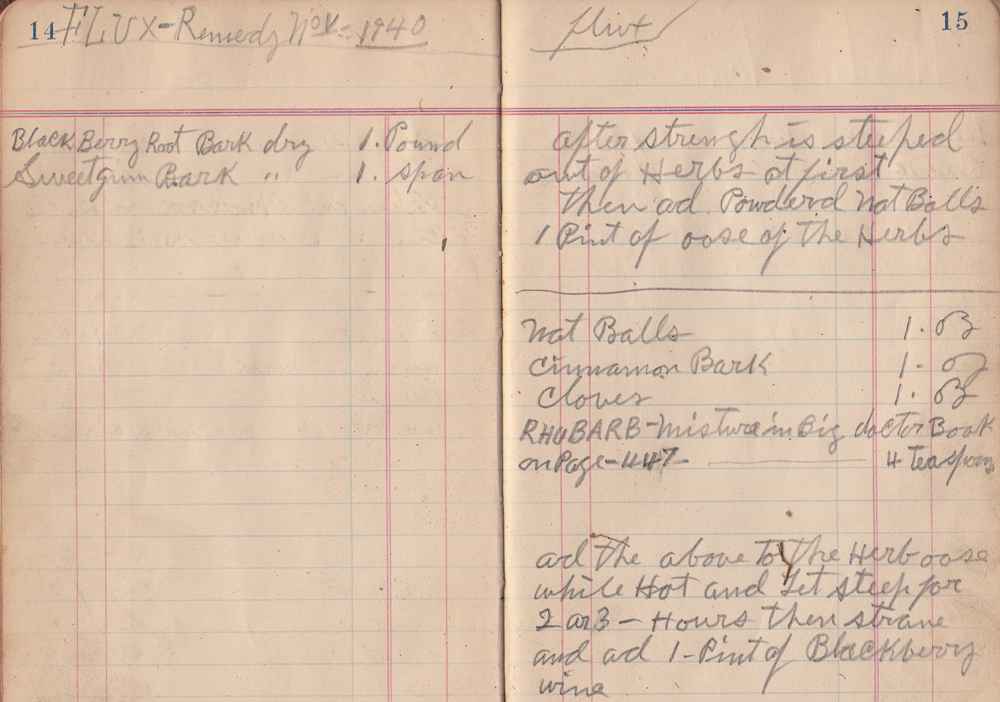 14 FLUX-Remedy Nov-1940
Black Berry Root Bark dry 1. Pound
Sweetgum Bark " 1. span
15
flux
after strengh is steeped
out of Herbs at first
Then ad Powderd Nat Balls
1 Pint of oose of The Herbs
Nat Balls 1. oz
Cinnamon Bark 1. oz
Cloves 1. oz
RHUBARB-Misture in Big doctor Book
on Page-447- 4 Teaspoons
ad The above To The Herb oose
while Hot and Let steep for
2 or 3 - Hours Then strane
and ad 1-Pint of Blackberry
wine